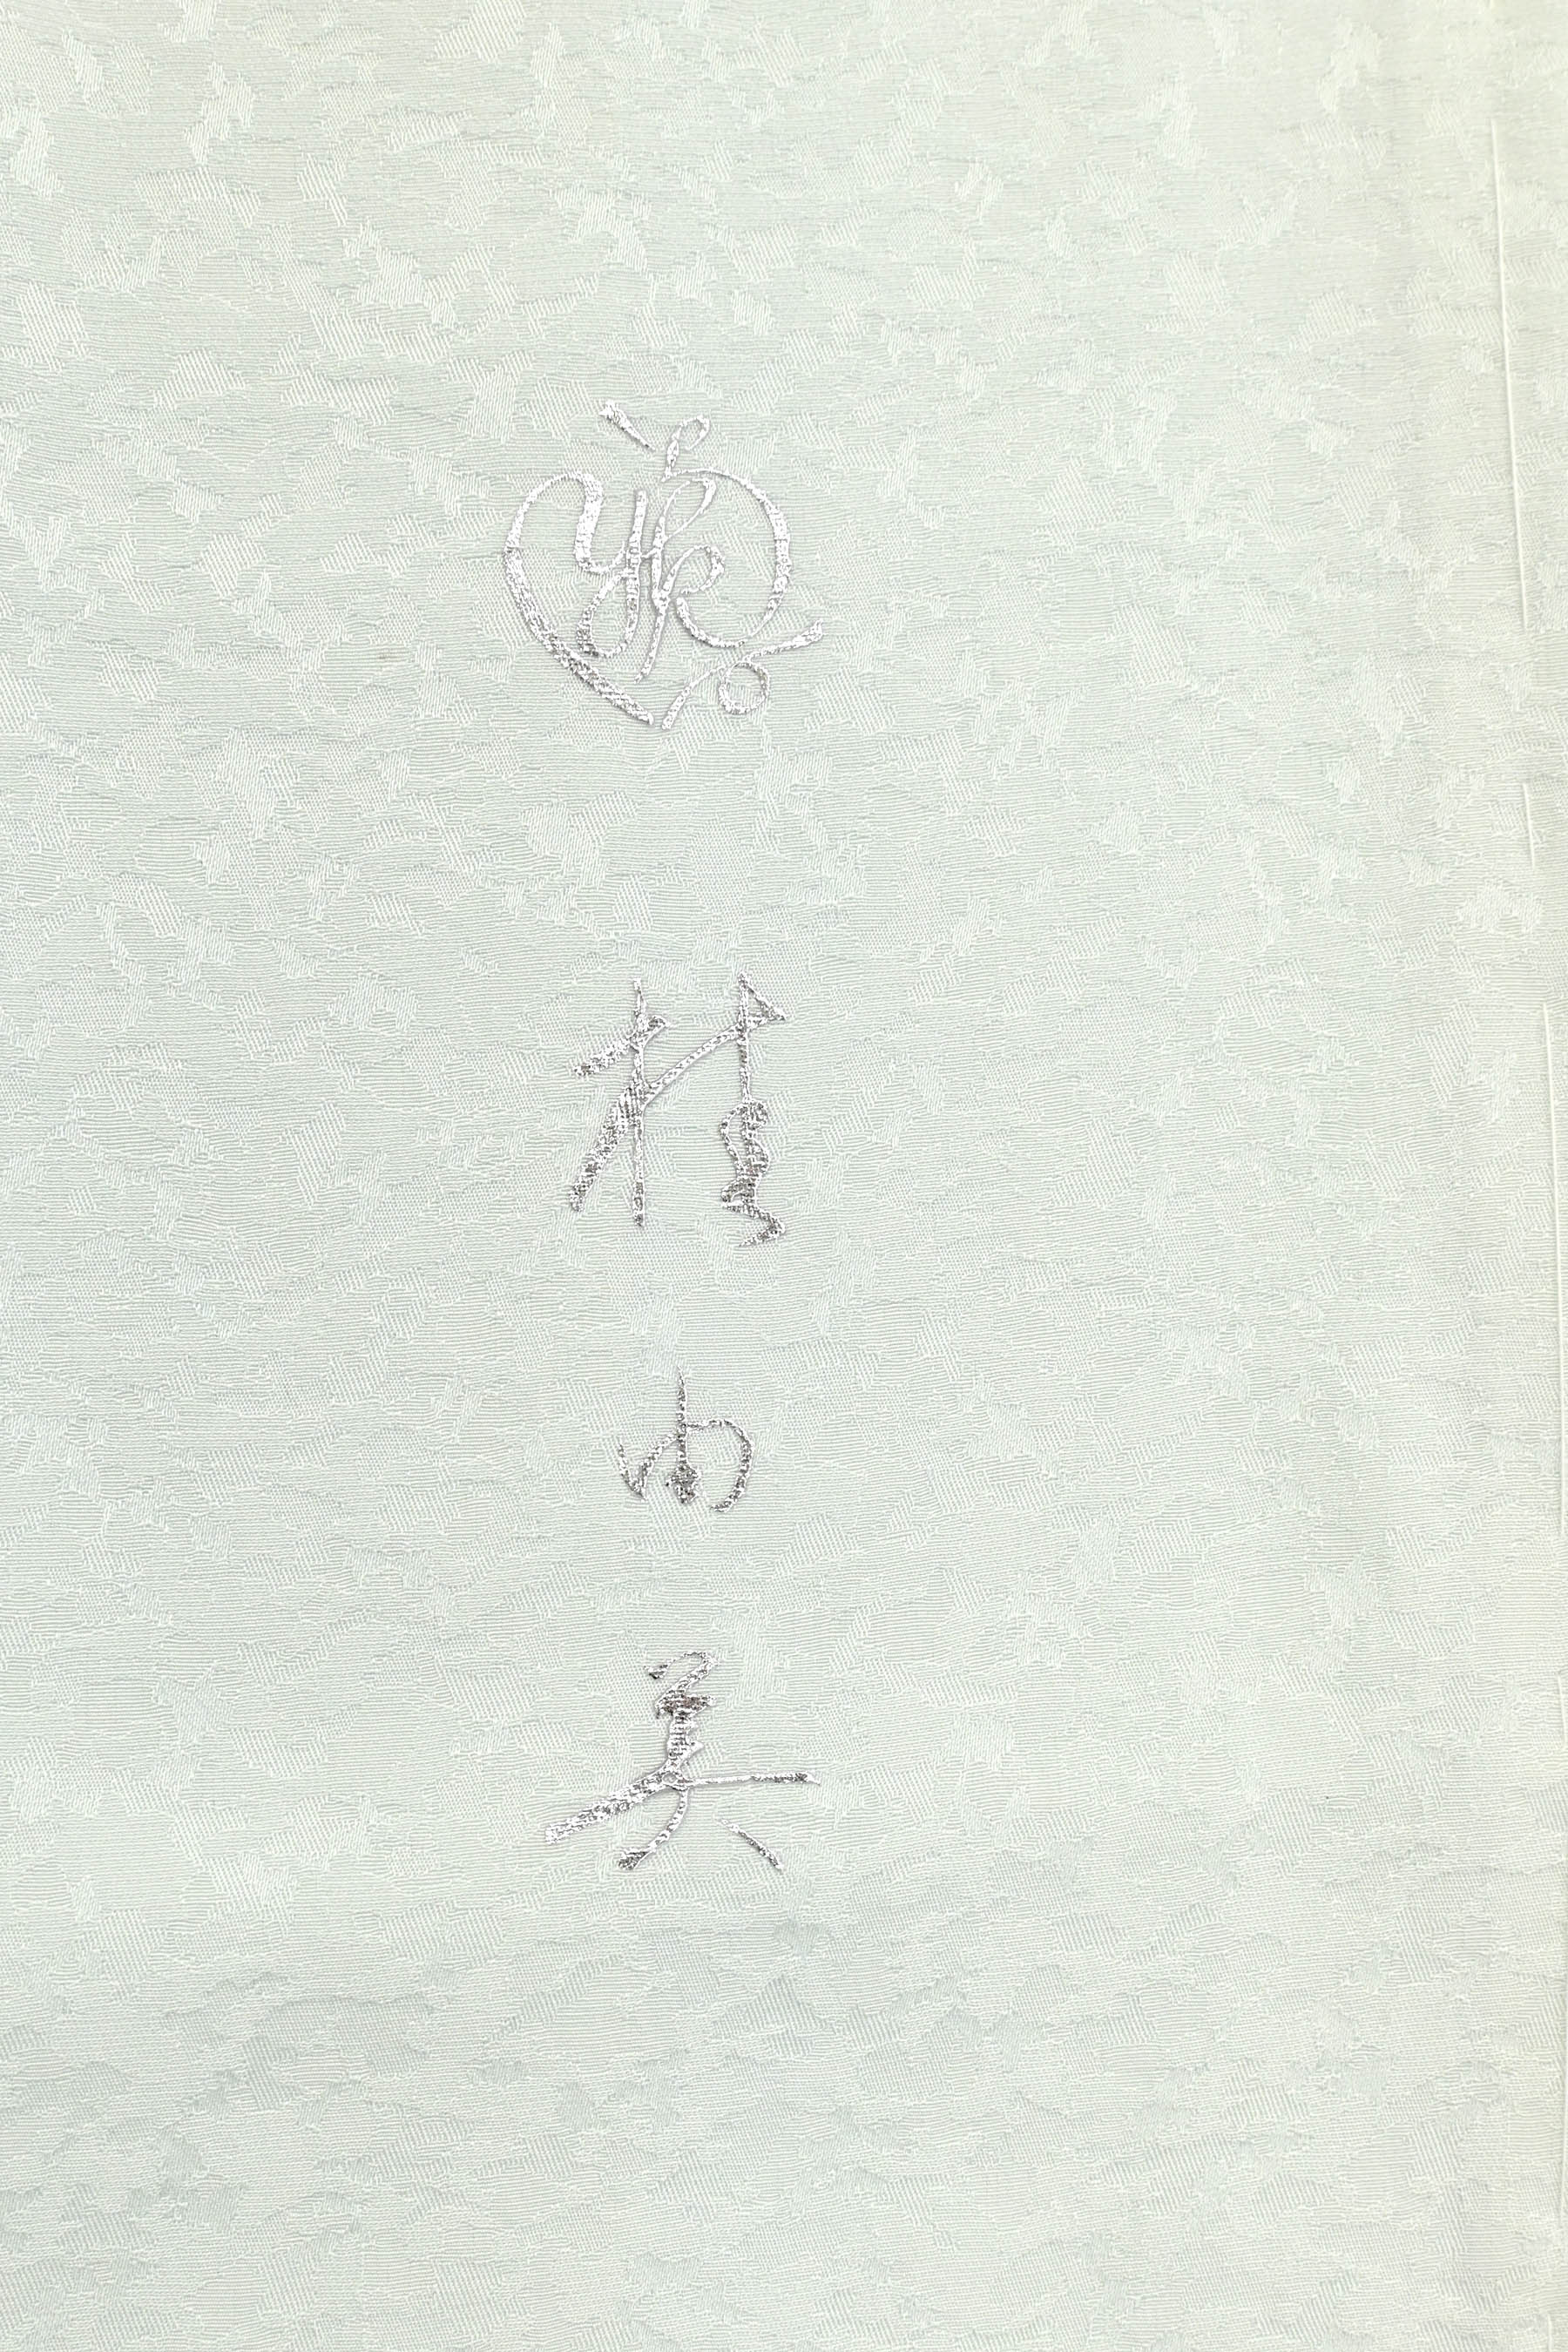 YK
桂由美